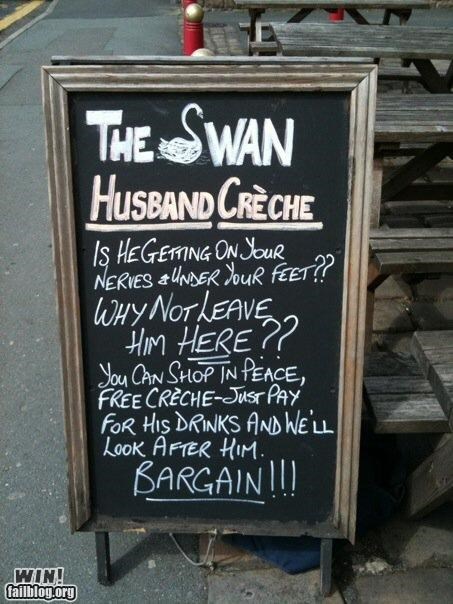 THE SWAN
HUSBAND CRÈCHE
IS HE GETTING ON YOUR
NERVES & UNDER YOUR FEET??
WHY NOT LEAVE
HIM HERE??
YOU CAN SHOP IN PEACE,
FREE CRÈCHE-JUST PAY
FOR HIS DRINKS AND WE'LL
LOOK AFTER HIM.
BARGAIN!!!
WIN!
failblog.org